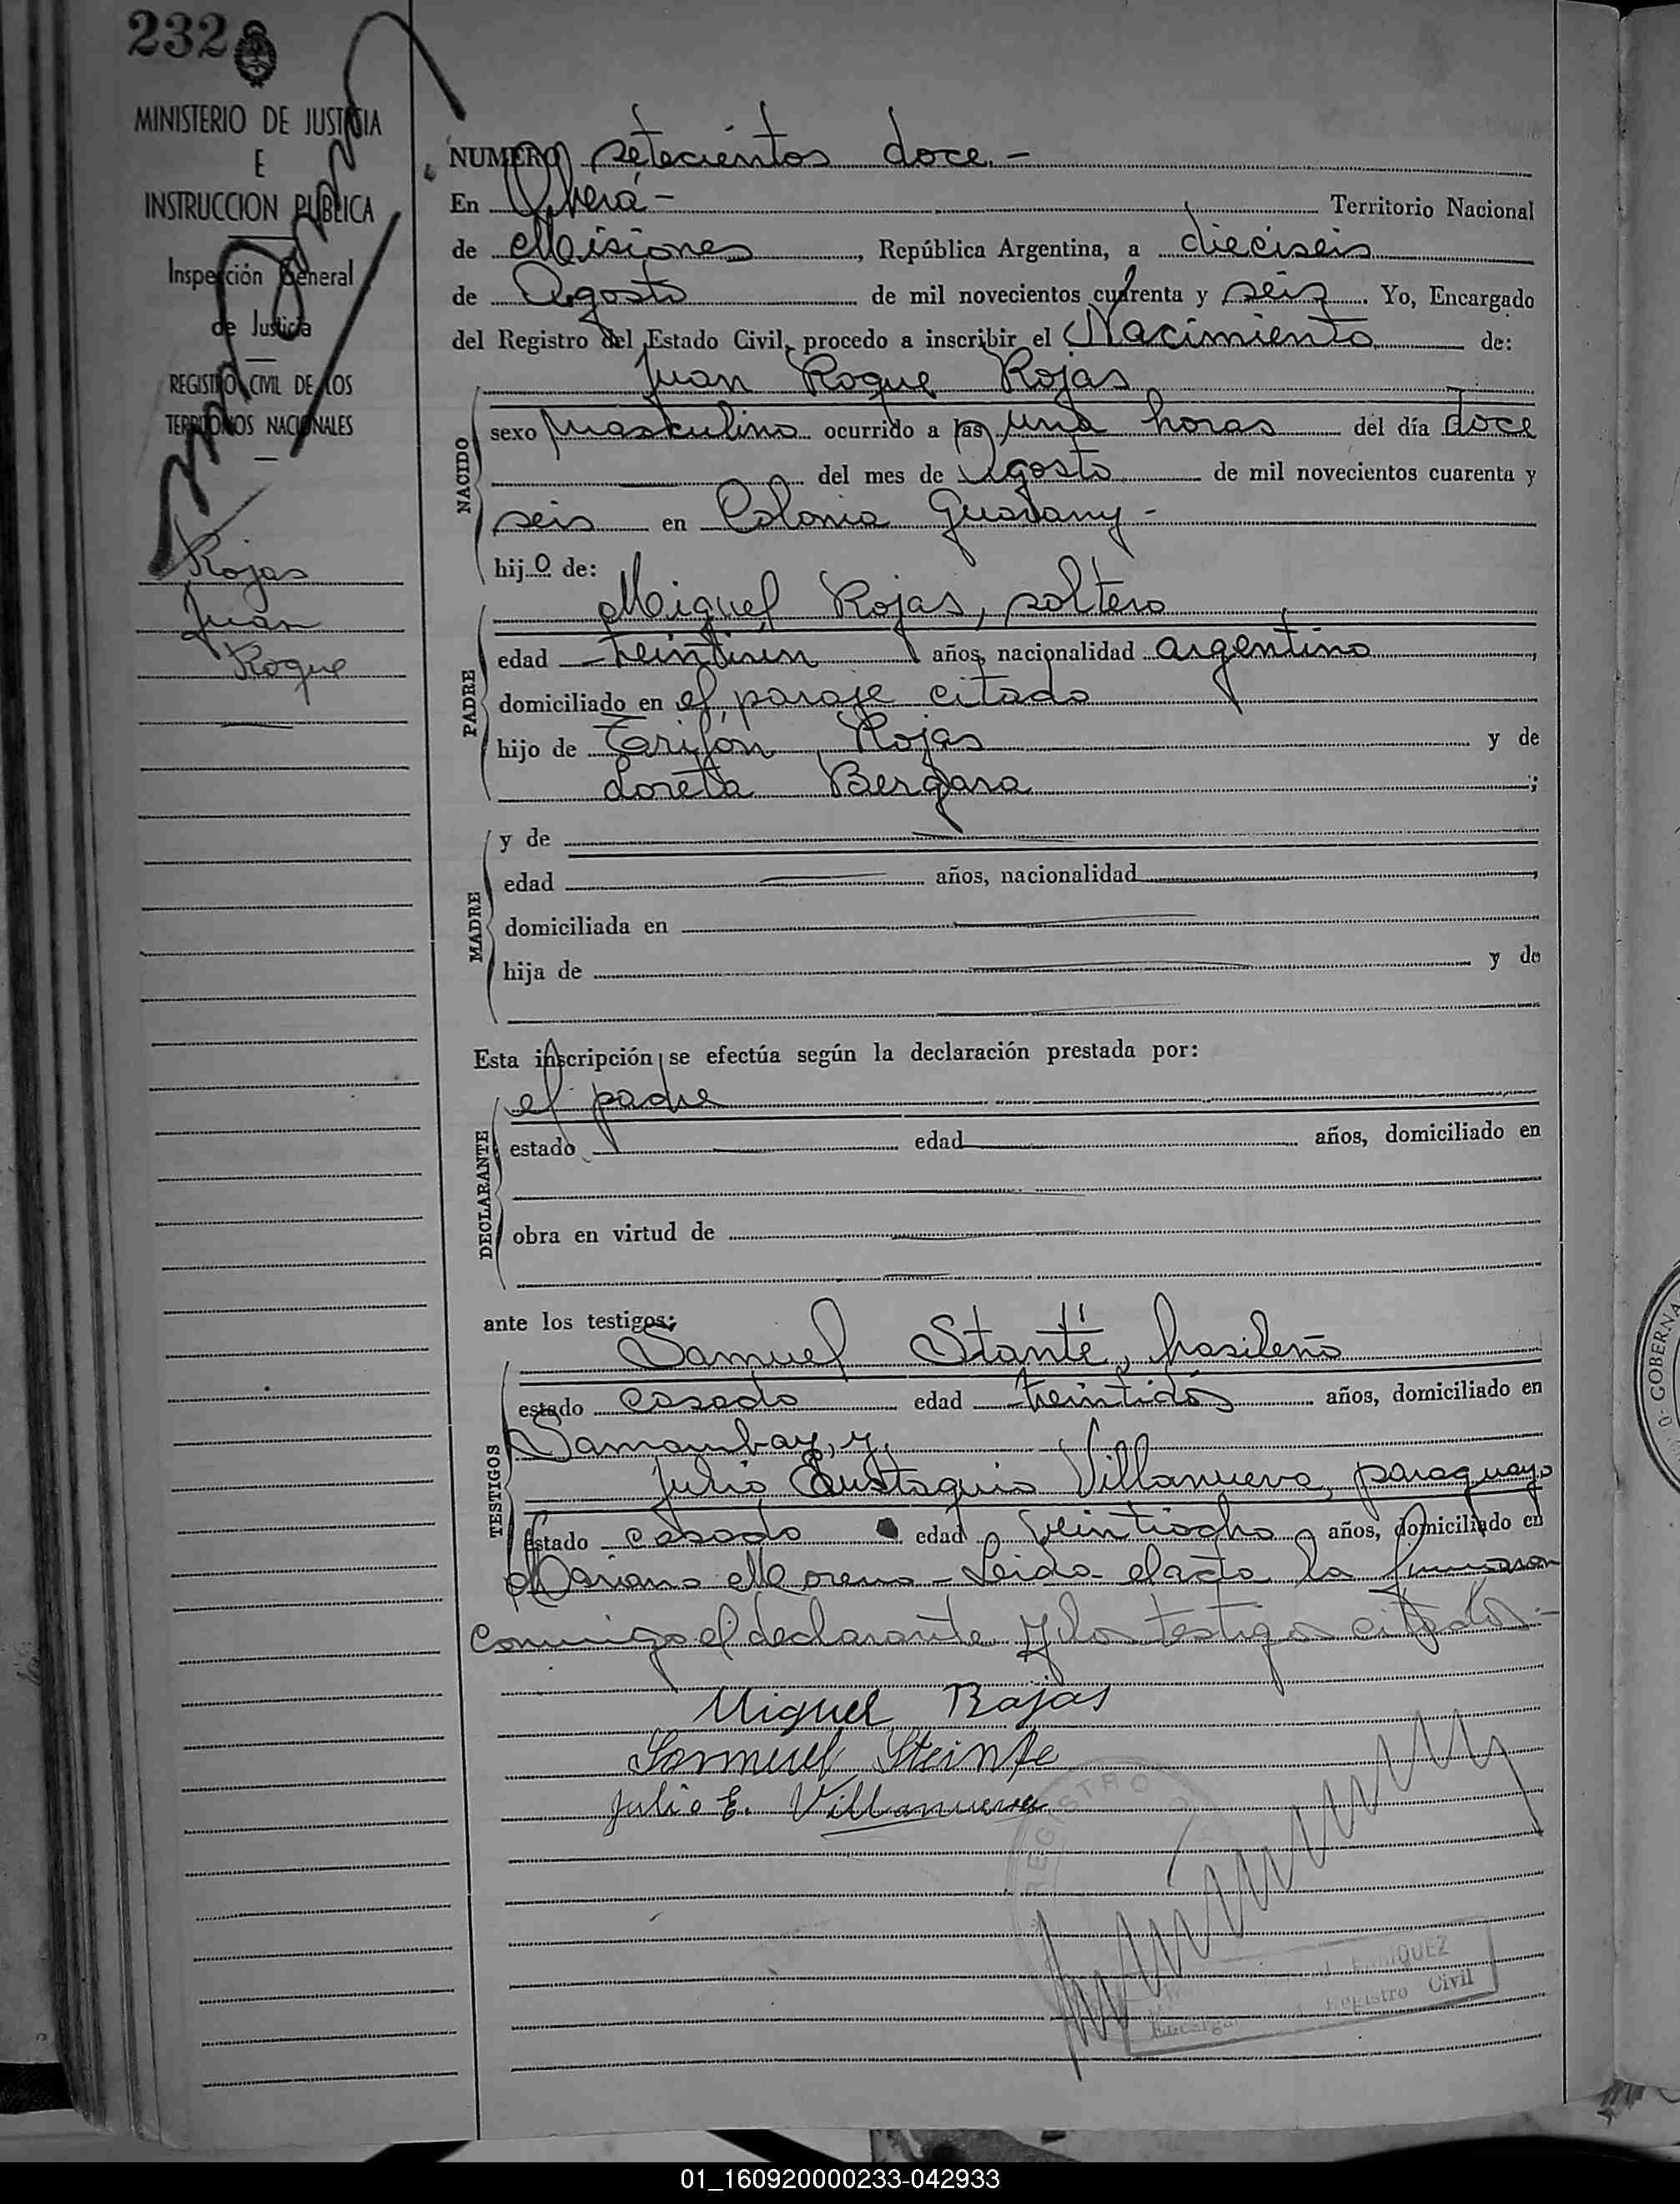 232
MINISTERIO DE JUSTICIA
E
INSTRUCCION PUBLICA
Inspección General
de Justicia
REGISTRO CIVIL DE LOS
TERRITORIOS NACIONALES
Rojas
Juan
Roque
NUMERO setecientos doce.-
En Oberá- Territorio Nacional
de Misiones, República Argentina, a dieciseis
de Agosto de mil novecientos cuarenta y seis. Yo, Encargado
del Registro del Estado Civil, procedo a inscribir el Nacimiento de:
Juan Roque Rojas
NACIDO
sexo masculino ocurrido a las una horas del día doce
del mes de Agosto de mil novecientos cuarenta y
seis en Colonia Guarany-
hijo de:
PADRE
Miguel Rojas, soltero
edad años, nacionalidad argentino,
domiciliado en el paraje citado
hijo de Rojas y de
Loreta Bergara;
MADRE
y de
edad años, nacionalidad,
domiciliada en
hija de y de
Esta inscripción se efectúa según la declaración prestada por:
DECLARANTE
el padre
estado edad años, domiciliado en
obra en virtud de
ante los testigos:
TESTIGOS
Samuel Stante, brasileño
estado casado edad treintidós años, domiciliado en
Samambay, y,
Julio Eustaquio Villanueva, paraguayo
estado casado edad veintiocho años, domiciliado en
Mariano Moreno - Leida el acta la firmaron
conmigo el declarante y los testigos citados.-
Miguel Rojas
Samuel Steinte
Julio E. Villanueva
REGISTRO
Registro Civil
GOBERNA
01_160920000233-042933